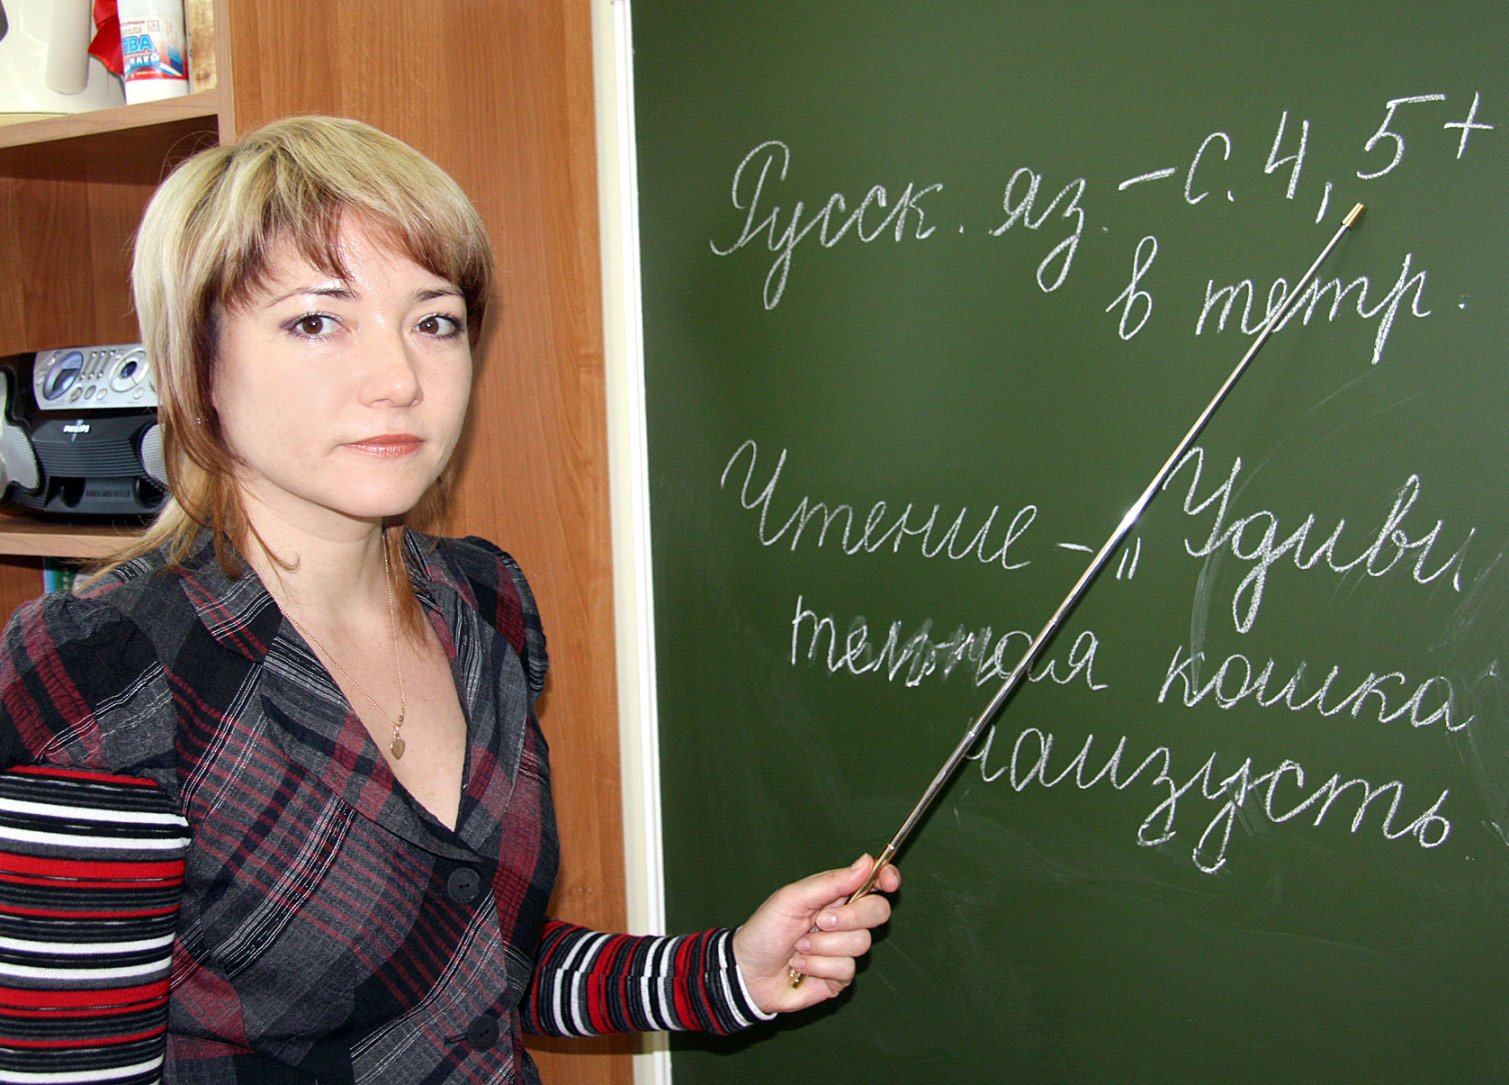 Русск. яз. - с. 4, 5 +
в тетр.
Чтение - „Удиви
тельная кошка
наизусть
PHILIPS